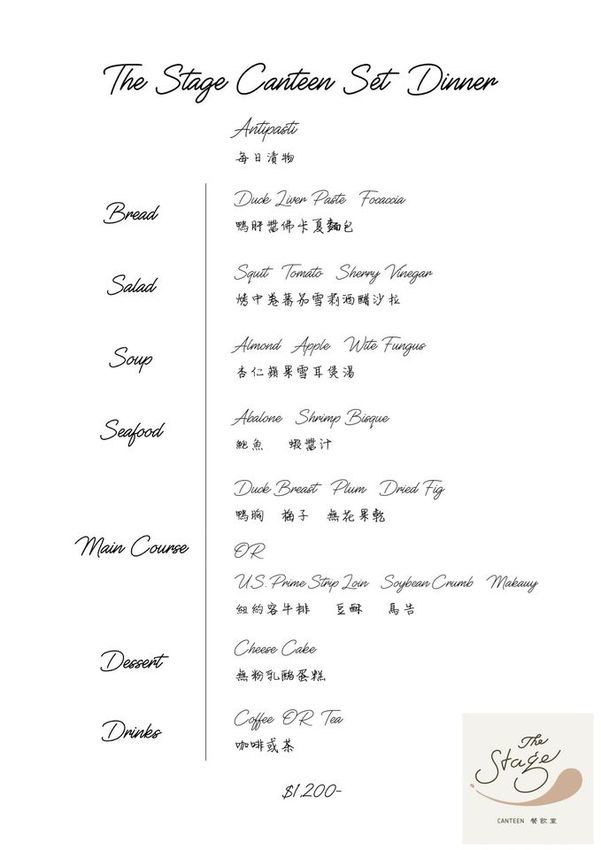 The Stage Canteen Set Dinner
Antipasti
每日漬物
Bread
Duck Liver Paste Focaccia
鴨肝醬佛卡夏麵包
Salad
Squit Tomato Sherry Vinegar
烤中卷蕃茄雪莉酒醋沙拉
Soup
Almond Apple Wite Fungus
杏仁蘋果雪耳煲湯
Seafood
Abalone Shrimp Bisque
鮑魚 蝦醬汁
Main Course
Duck Breast Plum Dried Fig
鴨胸 梅子 無花果乾
OR
U.S. Prime Strip Loin Soybean Crumb Makauy
紐約客牛排 豆酥 馬告
Dessert
Cheese Cake
無粉乳酪蛋糕
Drinks
Coffee OR Tea
咖啡或茶
$1,200-
The Stage
CANTEEN 餐飲室